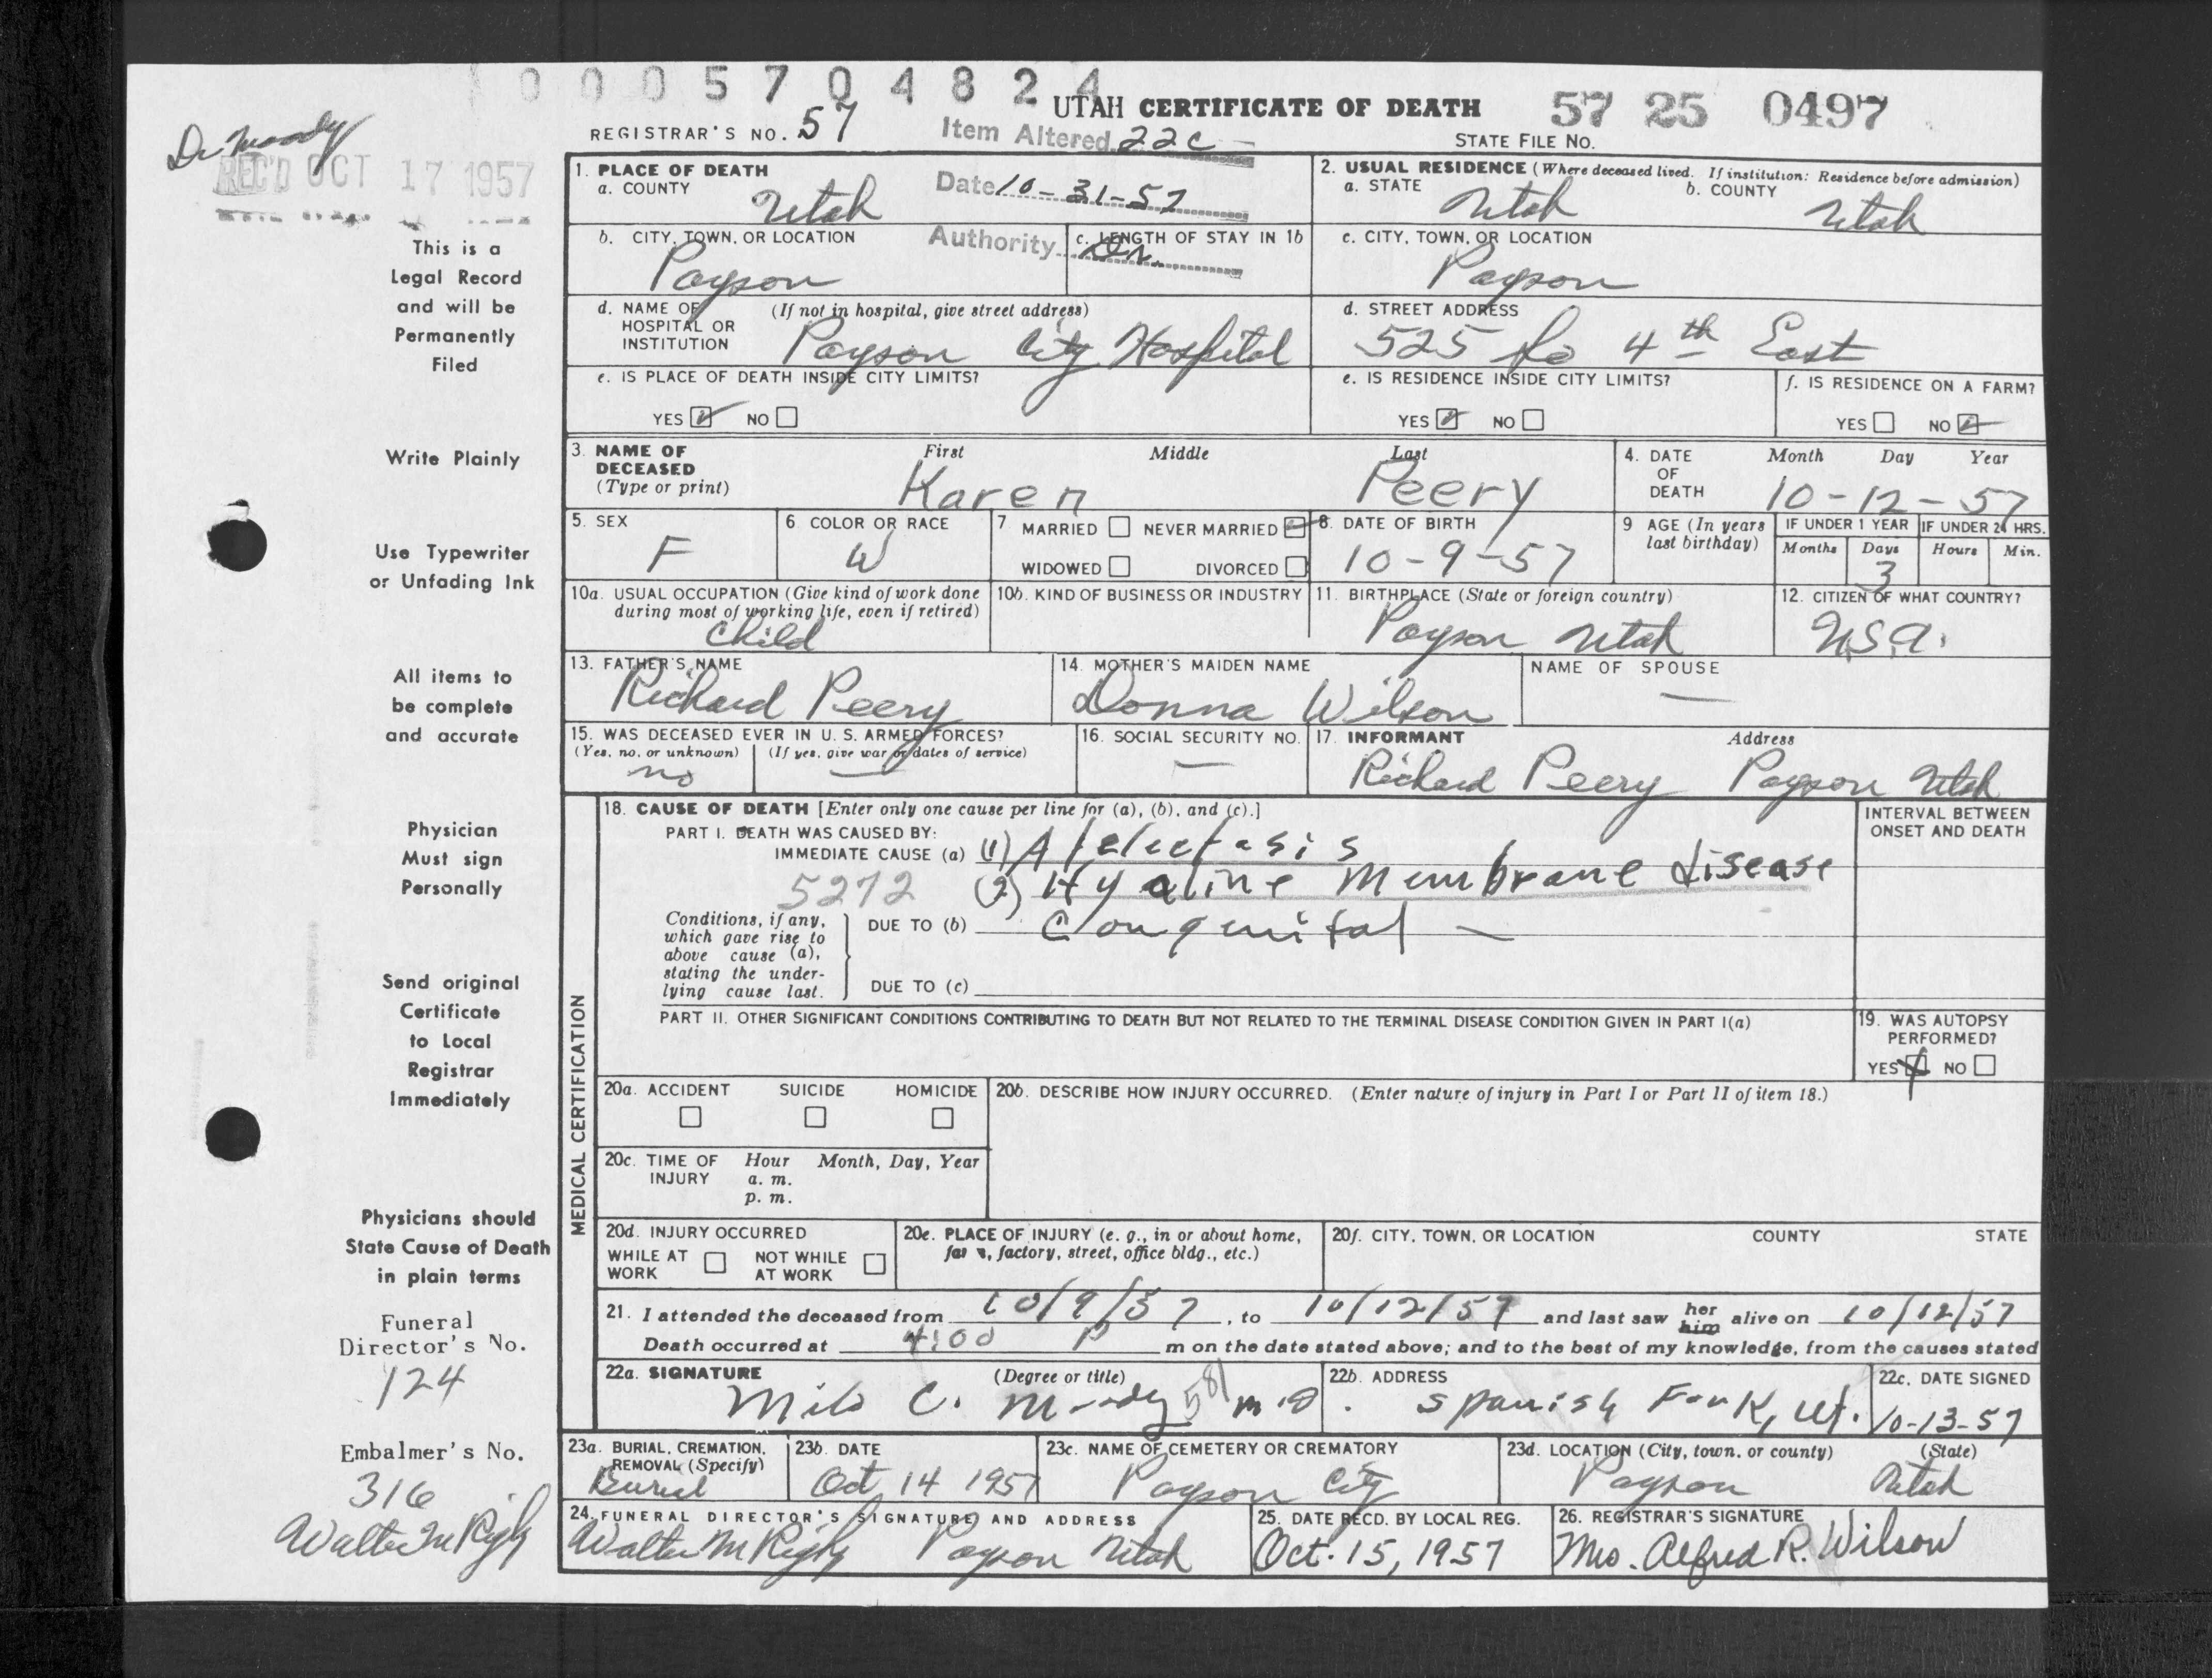 0 0 0 5 7 0 4 8 2 4
UTAH CERTIFICATE OF DEATH 57 25 0497
Dr Moody
REGISTRAR'S NO. 57 Item Altered 22c STATE FILE No.
REC'D OCT 17 1957
1. PLACE OF DEATH
a. COUNTY Utah
Date 10-31-57
2. USUAL RESIDENCE (Where deceased lived. If institution: Residence before admission)
a. STATE Utah b. COUNTY Utah
b. CITY, TOWN, OR LOCATION Payson
Authority Dr.
c. LENGTH OF STAY IN 1b
c. CITY, TOWN, OR LOCATION Payson
d. NAME OF HOSPITAL OR INSTITUTION (If not in hospital, give street address) Payson City Hospital
d. STREET ADDRESS 525 So 4th East
e. IS PLACE OF DEATH INSIDE CITY LIMITS?
YES NO
e. IS RESIDENCE INSIDE CITY LIMITS?
YES NO
f. IS RESIDENCE ON A FARM?
YES NO
3. NAME OF DECEASED (Type or print) First Middle Last
Karen Peery
4. DATE OF DEATH Month Day Year
10-12-57
5. SEX F
6. COLOR OR RACE W
7. MARRIED NEVER MARRIED
WIDOWED DIVORCED
8. DATE OF BIRTH 10-9-57
9 AGE (In years last birthday)
IF UNDER 1 YEAR IF UNDER 24 HRS.
Months Days Hours Min.
3
10a. USUAL OCCUPATION (Give kind of work done during most of working life, even if retired) Child
10b. KIND OF BUSINESS OR INDUSTRY
11. BIRTHPLACE (State or foreign country) Payson Utah
12. CITIZEN OF WHAT COUNTRY? U.S.A.
13. FATHER'S NAME Richard Peery
14. MOTHER'S MAIDEN NAME Donna Wilson
NAME OF SPOUSE —
15. WAS DECEASED EVER IN U. S. ARMED FORCES?
(Yes, no, or unknown) (If yes, give war or dates of service)
no —
16. SOCIAL SECURITY NO. —
17. INFORMANT Address
Richard Peery Payson Utah
MEDICAL CERTIFICATION
18. CAUSE OF DEATH [Enter only one cause per line for (a), (b), and (c).]
INTERVAL BETWEEN ONSET AND DEATH
PART I. DEATH WAS CAUSED BY:
IMMEDIATE CAUSE (a) (1) Atelectasis
5272 (2) Hyaline Membrane disease
Conditions, if any, which gave rise to above cause (a), stating the underlying cause last.
DUE TO (b) Congenital —
DUE TO (c)
PART II. OTHER SIGNIFICANT CONDITIONS CONTRIBUTING TO DEATH BUT NOT RELATED TO THE TERMINAL DISEASE CONDITION GIVEN IN PART I(a)
19. WAS AUTOPSY PERFORMED?
YES NO
20a. ACCIDENT SUICIDE HOMICIDE
20b. DESCRIBE HOW INJURY OCCURRED. (Enter nature of injury in Part I or Part II of item 18.)
20c. TIME OF INJURY Hour Month, Day, Year
a. m.
p. m.
20d. INJURY OCCURRED
WHILE AT WORK NOT WHILE AT WORK
20e. PLACE OF INJURY (e. g., in or about home, farm, factory, street, office bldg., etc.)
20f. CITY, TOWN, OR LOCATION COUNTY STATE
21. I attended the deceased from 10/9/57, to 10/12/57 and last saw her him alive on 10/12/57
Death occurred at 4:00 P m on the date stated above; and to the best of my knowledge, from the causes stated
22a. SIGNATURE (Degree or title)
Milo C. Moody 581 M.D.
22b. ADDRESS Spanish Fork, Ut.
22c. DATE SIGNED 10-13-57
23a. BURIAL, CREMATION, REMOVAL (Specify) Burial
23b. DATE Oct 14 1957
23c. NAME OF CEMETERY OR CREMATORY Payson City
23d. LOCATION (City, town, or county) (State)
Payson Utah
24. FUNERAL DIRECTOR'S SIGNATURE AND ADDRESS
Walter M Rigby Payson Utah
25. DATE RECD. BY LOCAL REG. Oct. 15, 1957
26. REGISTRAR'S SIGNATURE Mrs. Alfred R. Wilson
This is a
Legal Record
and will be
Permanently
Filed
Write Plainly
Use Typewriter
or Unfading Ink
All items to
be complete
and accurate
Physician
Must sign
Personally
Send original
Certificate
to Local
Registrar
Immediately
Physicians should
State Cause of Death
in plain terms
Funeral
Director's No.
124
Embalmer's No.
316
Walter M Rigby